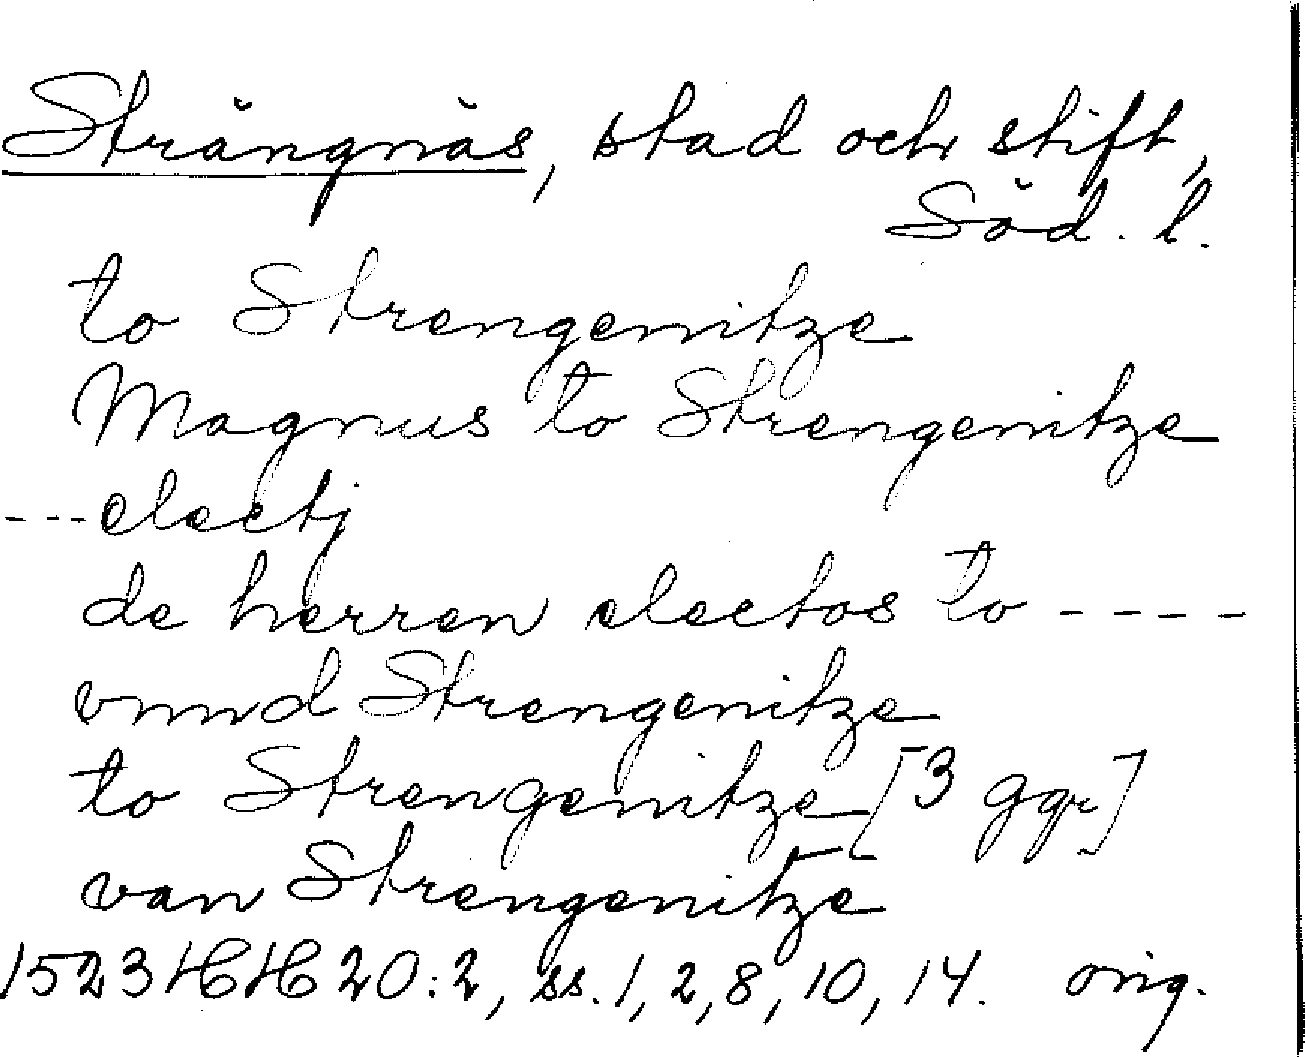 Strängnäs, stad och stift,
Söd. l.
to Strengenitze
Magnus to Strengenitze
---electj
de herren electos to ----
vnnd Strengenitze
to Strengenitze [3 ggr]
van Strengenitze
1523 HH 20:2, ss. 1, 2, 8, 10, 14. orig.